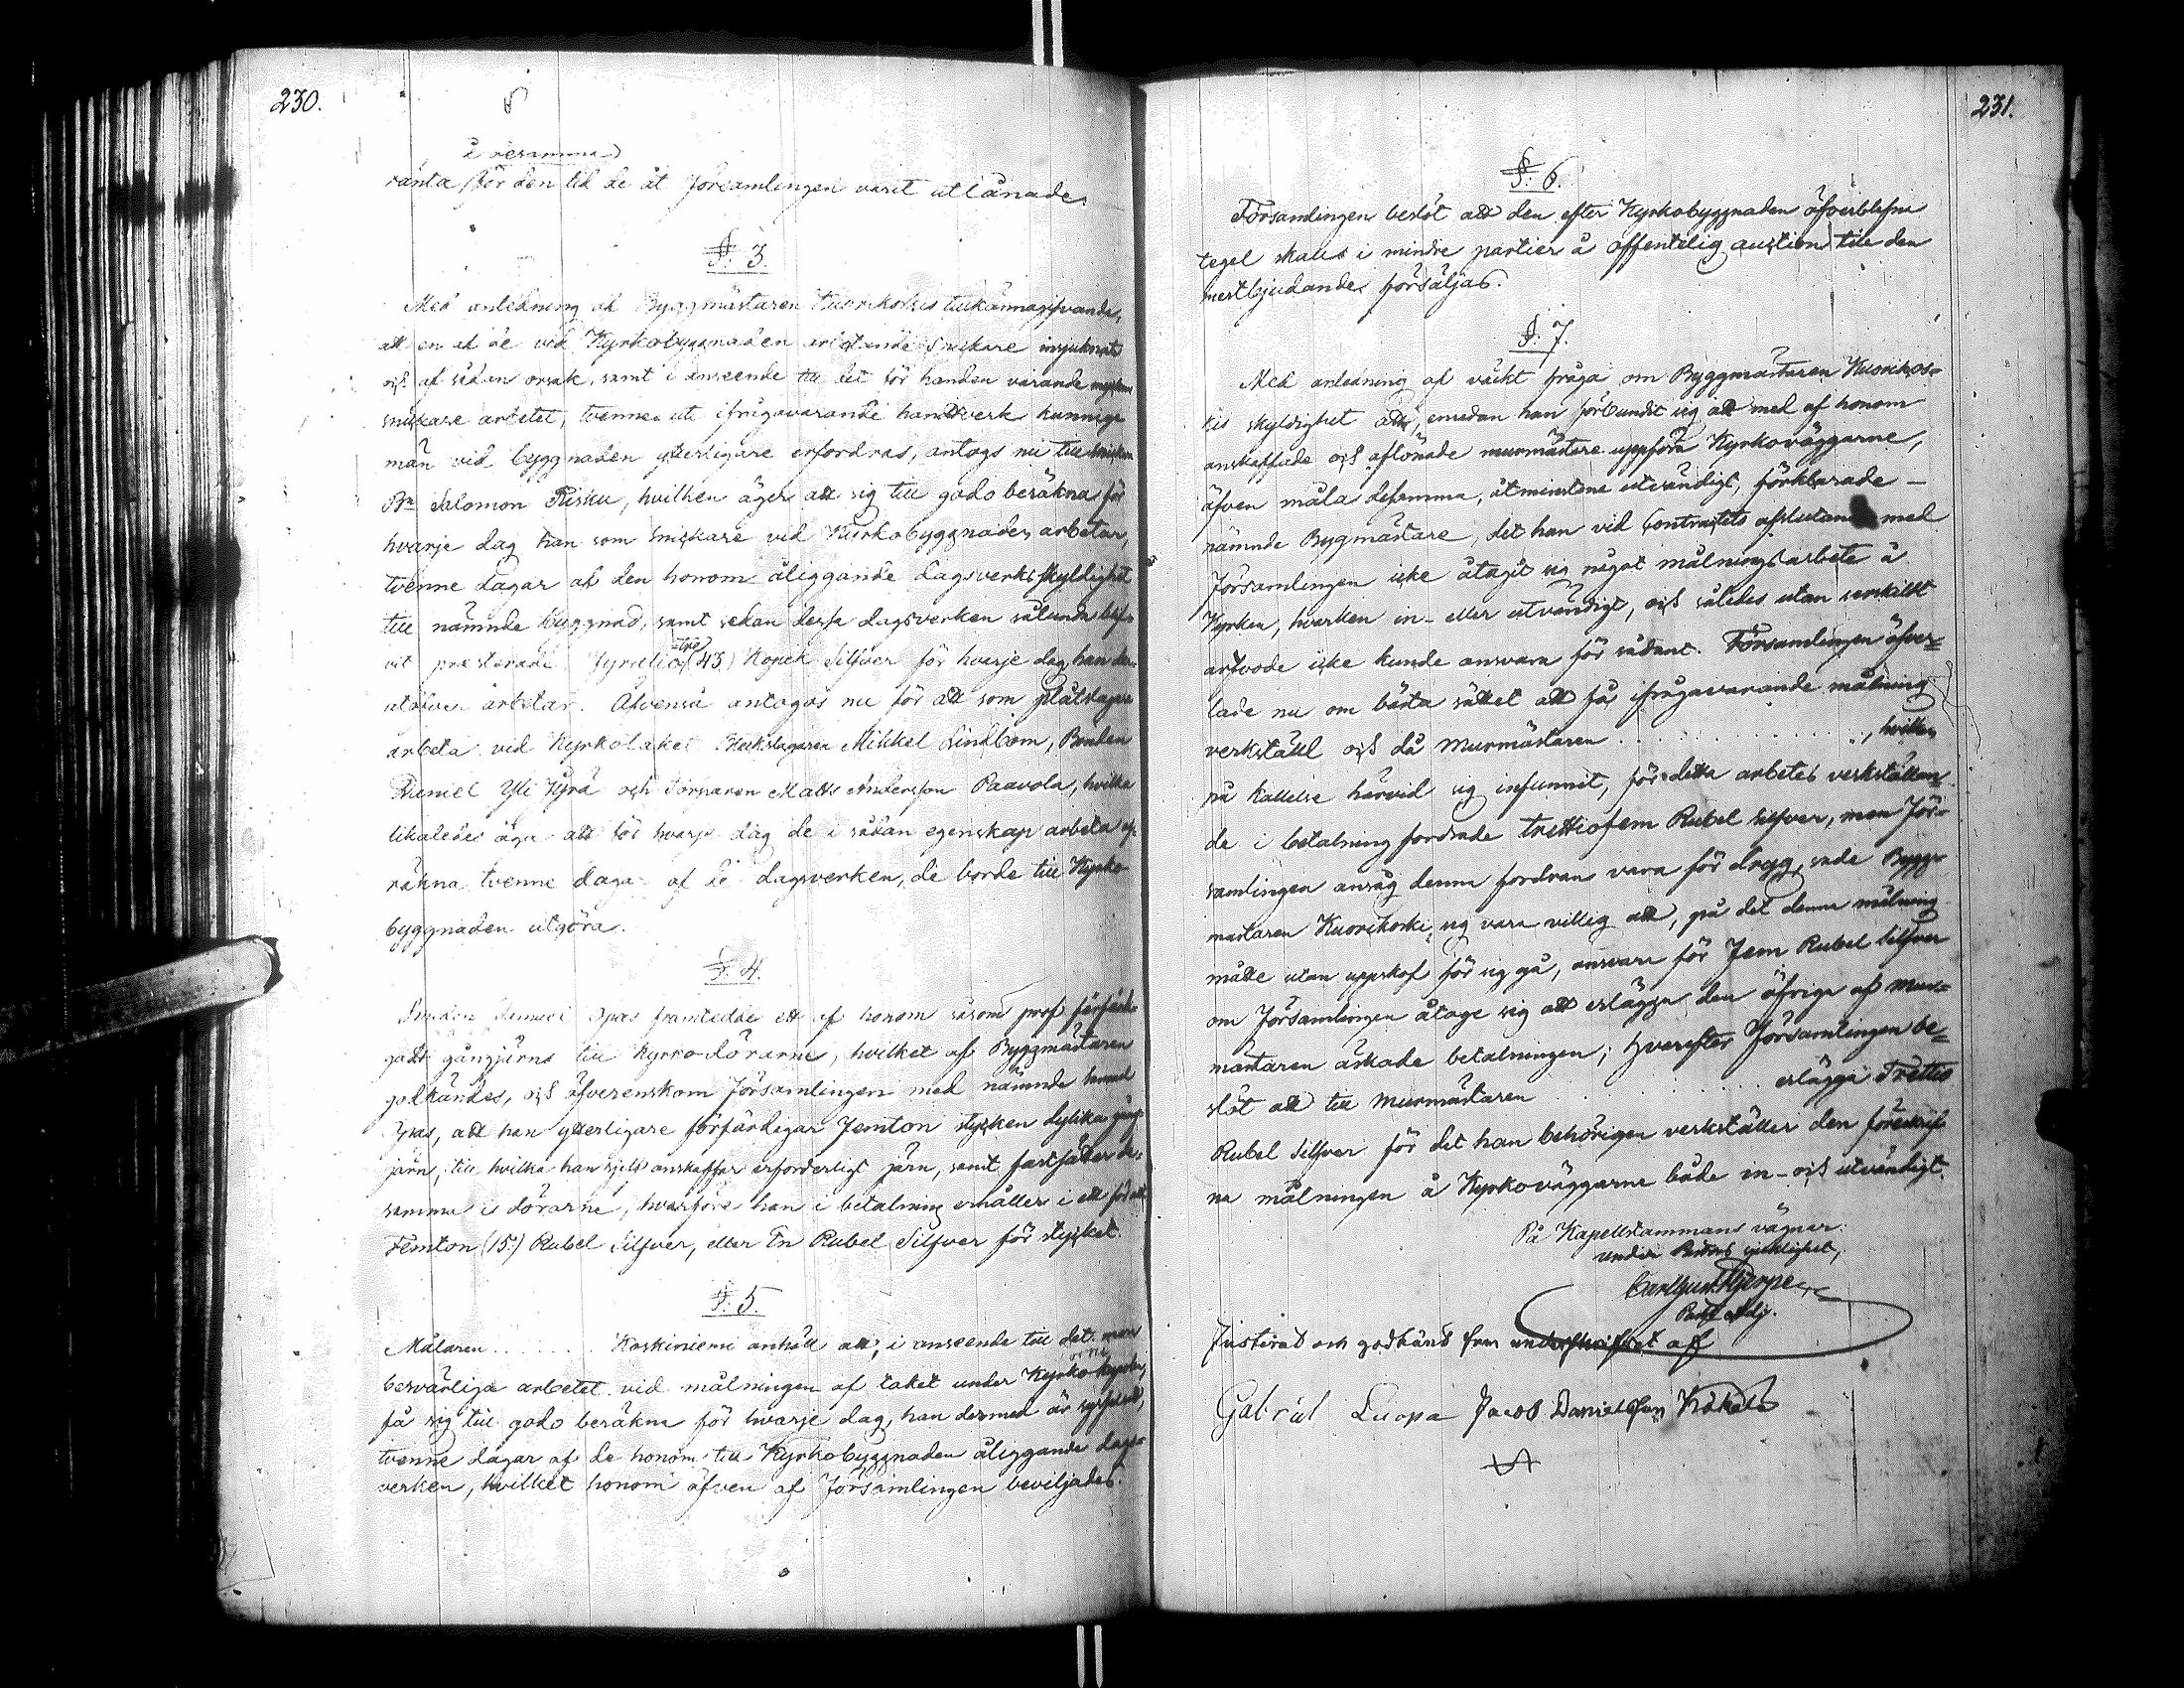 230.
å desamma
ränta för den tid de åt Församlingen varit utlånade.
§: 3.
Med anledning af Byggmästaren Kuorikoskis tillkännagifvande,
att en af de vid Kyrkobyggnaden arbetande snickare insjuknat
och af sådan orsak, samt i anseende till det för handen varande
snickare arbetet, tvenne uti ifrågavarande handtverk kunnige
män vid byggnaden ytterligare erfordras, antogs nu till
Bn Salomon Risku, hvilken äger att sig till godo beräkna för
hvarje dag han som snickare vid Kyrkobyggnaden arbetar,
tvenne dagar af den honom åliggande dagsverksskyldighet
till nämnde byggnad, samt sedan dessa dagsverken sålunda blif-
vit præsterade Fyratiotre (43) Kopek Silfver för hvarje dag han der-
utöfver arbetar. Äfvenså antogos nu för att som plåtslagare
arbeta vid Kyrkotaket Bleckslagaren Mikkel Lindbom, Bonden
Daniel Yli Hyrä och Torparen Matts Andersson Paavola, hvilka
likaledes äga att för hvarje dag de i sådan egenskap arbeta af-
räkna tvenne dagar af de dagsverken, de borde till Kyrko-
byggnaden utgöra.
§: 4.
Smeden Samuel Opas framtedde ett af honom såsom prof förfärdi-
gadt gångjärns till Kyrko-dörarne, hvilket af Byggmästaren
godkändes, och öfverenskom Församlingen med nämnde Samuel
Opas, att han ytterligare förfärdigar Femton stycken dylika gång-
järn, till hvilka han sjelf anskaffar erforderligt järn, samt fastsätter de-
samma i dörarne, hvarföre han i betalning erhåller i ett för allt
Femton (15:) Rubel Silfver, eller En Rubel Silfver för stycket.
§: 5.
Målaren . . . . . . . Koskiniemi anhöll att, i anseende till det mer
besvärliga arbetet vid målningen af taket under Kyrko
få sig till godo beräkna för hvarje dag, han dermed är sysselsatt,
tvenne dagar af de honom till Kyrkobyggnaden åliggande dags-
verken, hvilket honom äfven af Församlingen beviljades.
231.
§: 6.
Församlingen beslöt att den efter Kyrkobyggnaden öfverblefne
tegel skall i mindre partier å offentelig auction till den
mestbjudande försäljas.
§: 7.
Med anledning af väckt fråga om Byggmästaren Kuorikos-
kis skyldighet att, emedan han förbundit sig att med af honom
anskaffade och aflönade murmästare uppföra Kyrkoväggarne,
äfven måla desamma, åtminstone utvändigt, förklarade
nämnde Bygmästare, det han vid Contractets afslutande med
Församlingen icke åtagit sig något målningsarbete å
Kyrkan, hvarken in- eller utvändigt, och således utan serskildt
arfvode icke kunde ansvara för sådant. Församlingen öfver-
lade nu om bästa sättet att få ifrågavarande målning
verkställd och då Murmästaren . . . . . . . . . . . , hvilken
på kallelse härvid sig infunnit, för detta arbetes verkställan-
de i betalning fordrade trettiofem Rubel silfver, men För-
samlingen ansåg denna fordran vara för dryg, sade Bygg-
mästaren Kuorikoski sig vara villig att, på det denna målning
måtte utan uppskof för sig gå, ansvara för Fem Rubel silfver
om Församlingen åtage sig att erlägga den öfriga af Mur-
mästaren äskade betalningen; hvarefter Församlingen be-
slöt att till Murmästaren . . . . . . . . erlägga Trettio
Rubel Silfver för det han behörigen verkställer den föreskrif-
na målningen å Kyrkoväggarne både in- och utvändigt.
På Kapellstämmans vägnar:
under
Carl Gust. Hjerpe
Past. Adj.
Justerat och godkänd samt underskrifvet af
Gabriel Luopa Jacob Danielsson Kökala